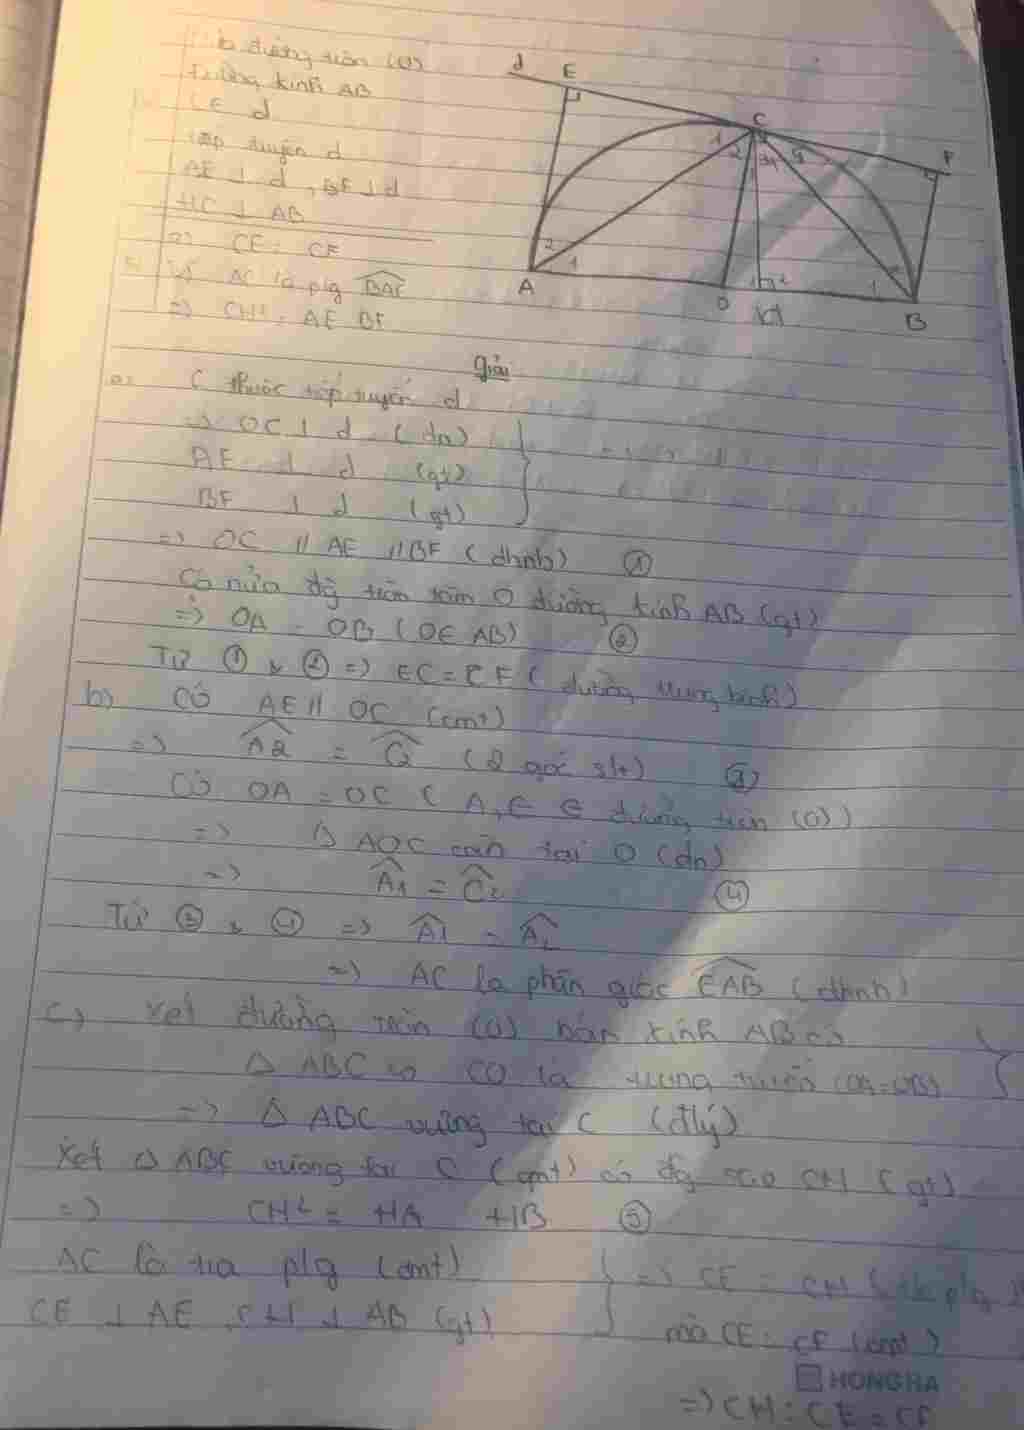 đường tròn (O)
Đường kính AB
C ∈ d
tiếp tuyến d
AE ⊥ d, BF ⊥ d
HC ⊥ AB
=> CE = CF
AC là p/g
=> CH² = AE BF
d E C F
1 2 3 4
2 1 1 2 1
A O H B
Giải
a) C thuộc tiếp tuyến d
=> OC ⊥ d (đn)
AE ⊥ d (gt)
BF ⊥ d (gt)
=> OC // AE // BF (dhnb) ①
Có nửa đg tròn tâm O đường kính AB (gt)
=> OA = OB (O ∈ AB) ②
Từ ① & ② => EC = CF (đường trung bình)
b) Có AE // OC (cmt)
=> A2 = C2 (2 góc slt) ③
Có OA = OC (A, C ∈ đường tròn (O))
=> Δ AOC cân tại O (đn)
=> A1 = C2 ④
Từ ③ & ④ => A1 = A2
=> AC là phân giác EAB (đhnb)
c) Xét đường tròn (O) bán kính AB có
Δ ABC có CO là trung tuyến (OA=OB)
=> Δ ABC vuông tại C (đlý)
Xét Δ ABC vuông tại C (cmt) có đg cao CH (gt)
=> CH² = HA HB ⑤
AC là tia p/g (cmt)
CE ⊥ AE, CH ⊥ AB (gt)
=> CE = CH
mà CE = CF (cmt)
HONG HA
=> CH = CE = CF